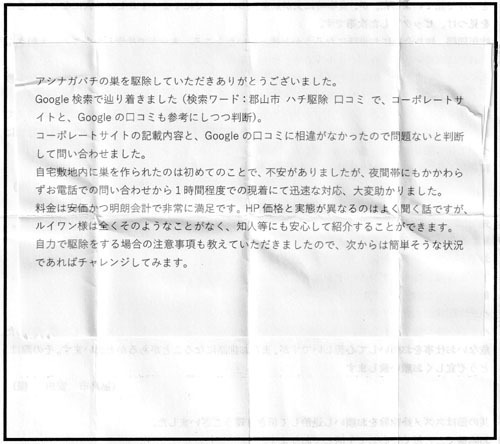 アシナガバチの巣を駆除していただきありがとうございました。
Google 検索で辿り着きました（検索ワード：郡山市 ハチ駆除 口コミ で、コーポレートサ
イトと、Google の口コミも参考にしつつ判断）。
コーポレートサイトの記載内容と、Google の口コミに相違がなかったので問題ないと判断
して問い合わせました。
自宅敷地内に巣を作られたのは初めてのことで、不安がありましたが、夜間帯にもかかわら
ずお電話での問い合わせから１時間程度での現着にて迅速な対応、大変助かりました。
料金は安価かつ明朗会計で非常に満足です。HP 価格と実態が異なるのはよく聞く話ですが、
ルイワン様は全くそのようなことがなく、知人等にも安心して紹介することができます。
自力で駆除をする場合の注意事項も教えていただきましたので、次からは簡単そうな状況
であればチャレンジしてみます。